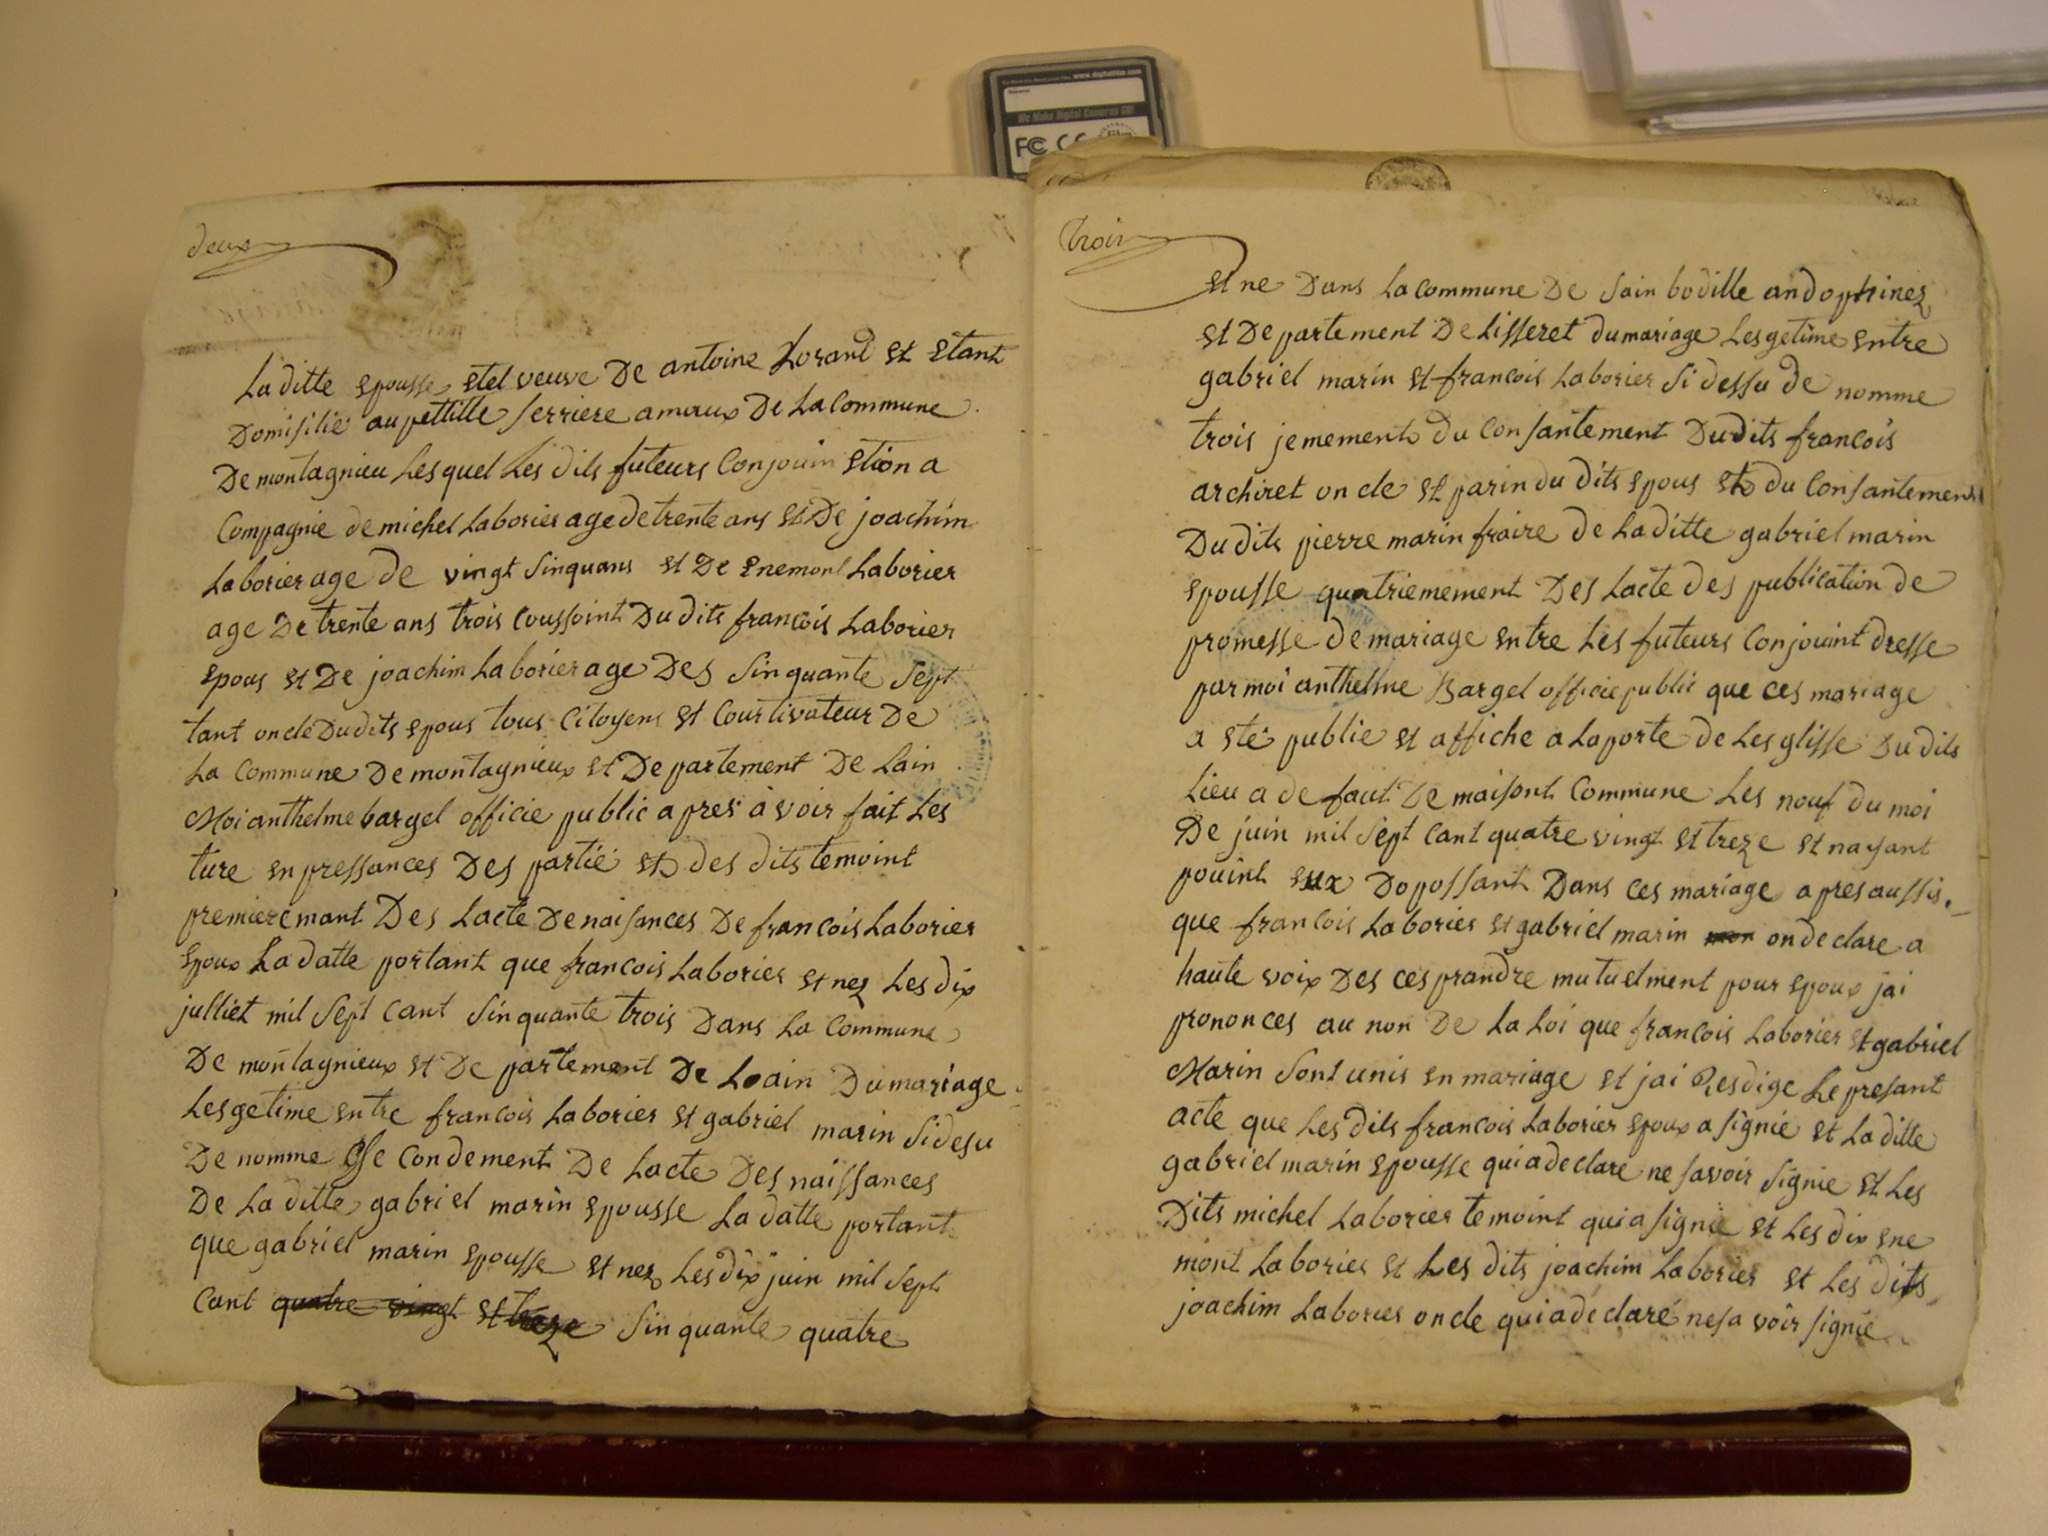 www.digitalfilm.com
We Make Digital Cameras GO!
FC CE
deux
La ditte epousse etel veuve De antoine Lorand et Etant
Domisilié au pettitte serriere amoux De La Commune
De montagnieu Lesquel Les dits futeurs Conjouin Etion a
Compagnie de michel Laborier age de trente ans et De joachim
Laborier age de vingt sinquans et De Enemont Laborier
age De trente ans trois Coussoint Du dits francois Laborier
Epous et De joachim Laborier age Des sinquante sept
tant oncle Du dits epous tous Citoyens et Courtivateur De
La Commune De montagnieux et Departement De Lain
Moi anthelme bargel officie public apres avoir fait Les
ture en pressances Des partié et des dits temoint
premieremant Des Lacte De naisances De francois Laborier
Epoux La datte portant que francois Laborier et nez Les dix
julliet mil sept cant sinquante trois Dans La Commune
De montagnieux et De partement De Loain Du mariage
Lesgetime entre francois Laborier et gabriel marin si desu
De nomme Essecondement De Lacte Des naissances
De La ditte gabriel marin Epousse La datte portant
que gabriel marin Epousse et nez Les dix juin mil sept
Cant quatre vingt et treze sinquante quatre
trois
et ne Dans La commune De sain bodille andophinez
et Departement De Lisseret du mariage Lesgetime Entre
gabriel marin et francois Laborier si dessu de nomme
trois jemement du Consantement Du dits francois
archiret oncle et parin du dits Epous et du Consantement
Du dits pierre marin fraire de La ditte gabriel marin
Epousse quatriemement Des Lacte des publication de
promesse de mariage Entre Les futeurs Conjouint dresse
par moi anthelme Bargel officie public que ces mariage
a eté publie et affiche a La porte de Lesglisse Du dits
Lieu a defaut De maisont Commune Les nouf du moi
De juin mil sept cant quatre vingt et treze et nayant
pouint eux Dopossant Dans ces mariage apres aussis
que francois Laborier et gabriel marin mon on declare a
haute voix Des ces prandre mutuelment pour Epoux jai
prononces au non De La Loi que francois Laborier et gabriel
Marin sont unis en mariage et jai Resdige Le presant
acte que Les dits francois Laborier Epoux a signie et La ditte
gabriel marin Epousse quia declare ne savoir signie et Les
Dits michel Laborier temoint qui a signie et Les dix Ene
mont Laborier et Les dits joachim Laborier et Les dits
joachim Laborier oncle quia declaré nesa voir signie